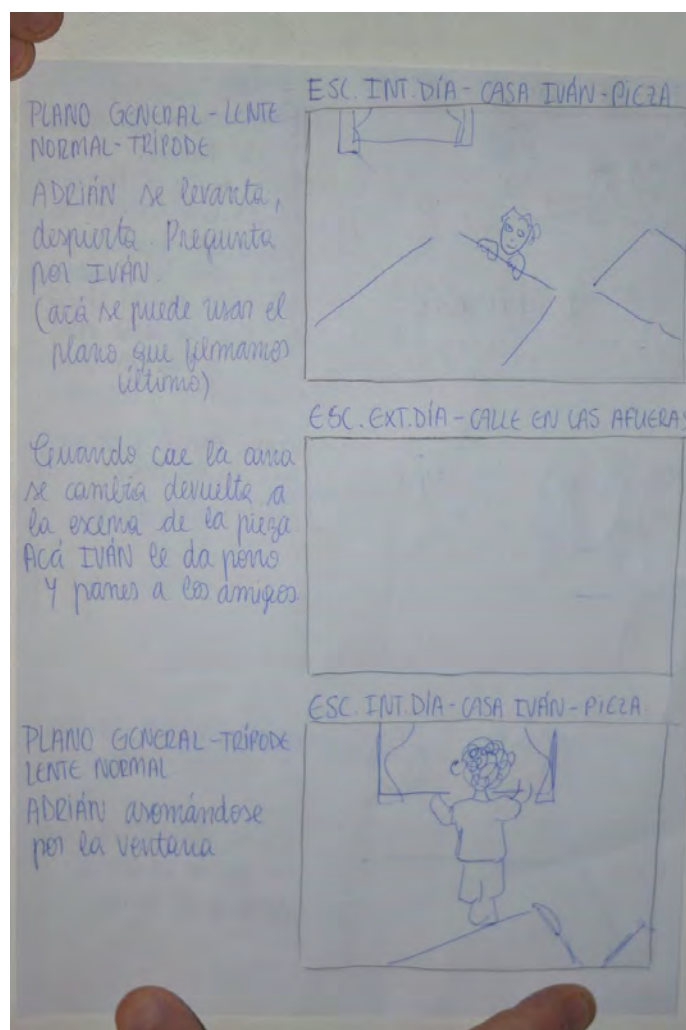 ESC. INT. DÍA - CASA IVÁN - PIEZA
PLANO GENERAL - LENTE
NORMAL - TRÍPODE
ADRIÁN se levanta,
despierta. Pregunta
por IVÁN.
(acá se puede usar el
plano que filmamos
último)
ESC. EXT. DÍA - CALLE EN LAS AFUERAS
Cuando cae la
se cambia devuelta a
la escena de la pieza
Acá IVÁN le da porro
Y panes a los amigos.
ESC. INT. DÍA - CASA IVÁN - PIEZA
PLANO GENERAL - TRÍPODE
LENTE NORMAL
ADRIÁN asomándose
por la ventana